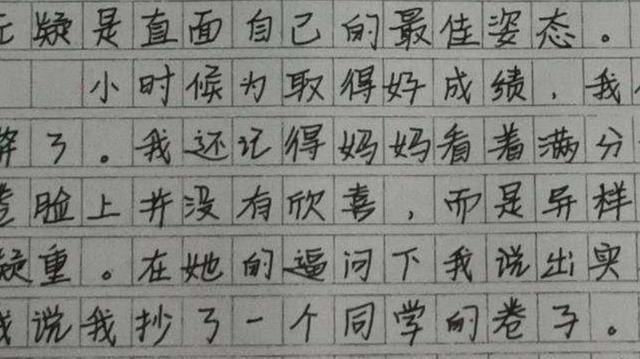 疑是直面自己的最佳姿态。
小时候为取得好成绩，我
了。我还记得妈妈看着满分
脸上并没有欣喜，而是异样
重。在她的逼问下我说出实
我说我抄了一个同学的卷子。